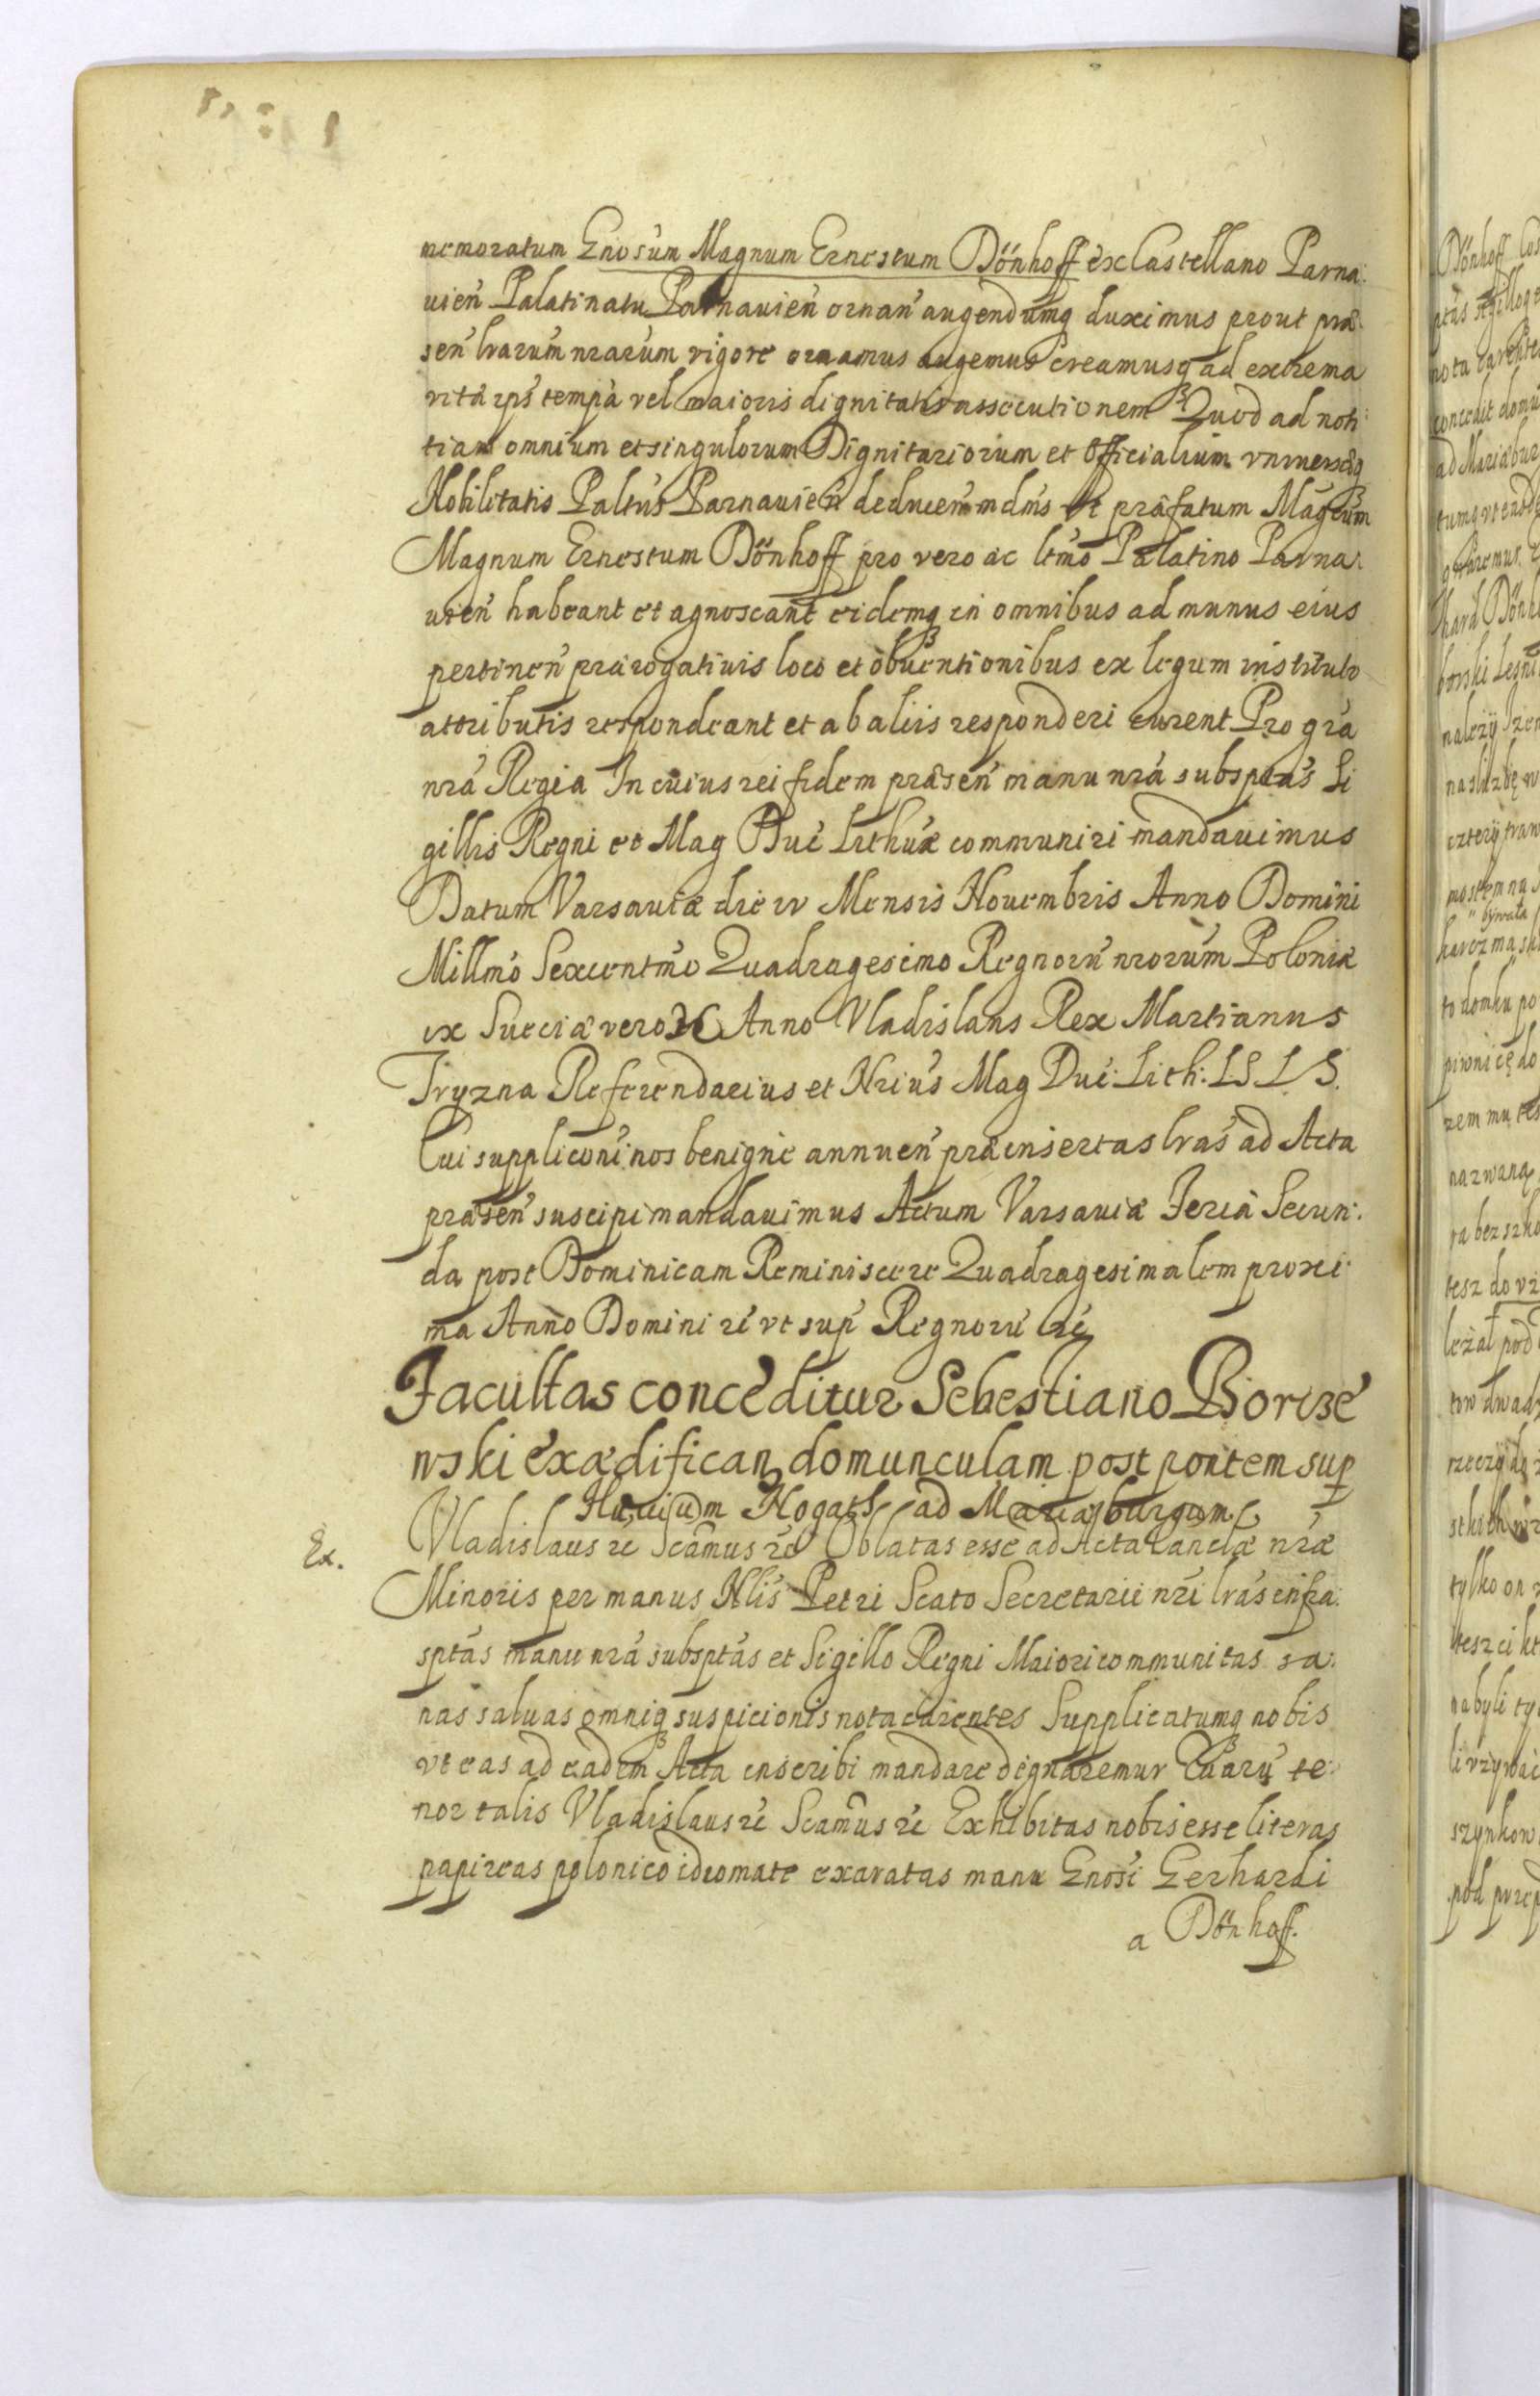 memoratum Gnosum Magnum Ernestum Dönhoff ex Castellano Parna:
uien Palatinatu Parnauien ornan augendumq duximus prout præ:
sen lrarum nrarum vigore ornamus augemus creamusq ad extrema
vitæ ips tempa vel maioris dignitatis assecutionem Quod ad noti:
tiam omnium et singulorum Dignitariorum et Officialium vniuersæq
Nobilitatis Paltus Parnauien deducen mdms Vt præfatum Magcum
Magnum Ernestum Dönhoff pro vero ac ltmo Palatino Parna:
uien habeant et agnoscant eidemq in omnibus ad munus eius
pertinen prærogatiuis loco et obuentionibus ex legum instituto
attributis respondeant et ab aliis responderi curent Pro gra
nra Regia In cuius rei fidem præsen manu nra subsptas Si
gillis Regni et Mag Duc Lithuæ communiri mandauimus
Datum Varsauiæ die IV Mensis Nouembris Anno Domini
Millmo Sexcentmo Quadragesimo Regnoru nrorum Poloniæ
IX Sueciæ vero Anno Vladislaus Rex Martianus
Tryzna Referendarius et Nrius Mag Duc: Lith: LS LS.
Cui suppliconi nos benigne annuen præinsertas lras ad Acta
præsen suscipi mandauimus Actum Varsauiæ Feria Secun:
da post Dominicam Reminiscere Quadragesimalem proxi
ma Anno Domini rc vt sup Regnoru rc
Facultas conceditur Sebestiano Borize
wski exædifican domunculam post pontem sup
fluuium Nogath ad Mariæburgum
Ex. Vladislaus rc Scamus rc Oblatas esse ad Acta Canclæ nræ
Minoris per manus Nlis Petri Scato Secretarii nri lras infra:
sptas manu nra subsptas et Sigillo Regni Maiori communitas sa:
nas saluas omniq suspicionis nota carentes Supplicatumq nobis
vt eas ad eadem Acta inscribi mandare dignaremur Quaru te:
nor talis Vladislaus rc Scamus rc Exhibitas nobis esse literas
papireas polonico idiomate exaratas manu Gnosi Gerhardi
a Dönhoff.